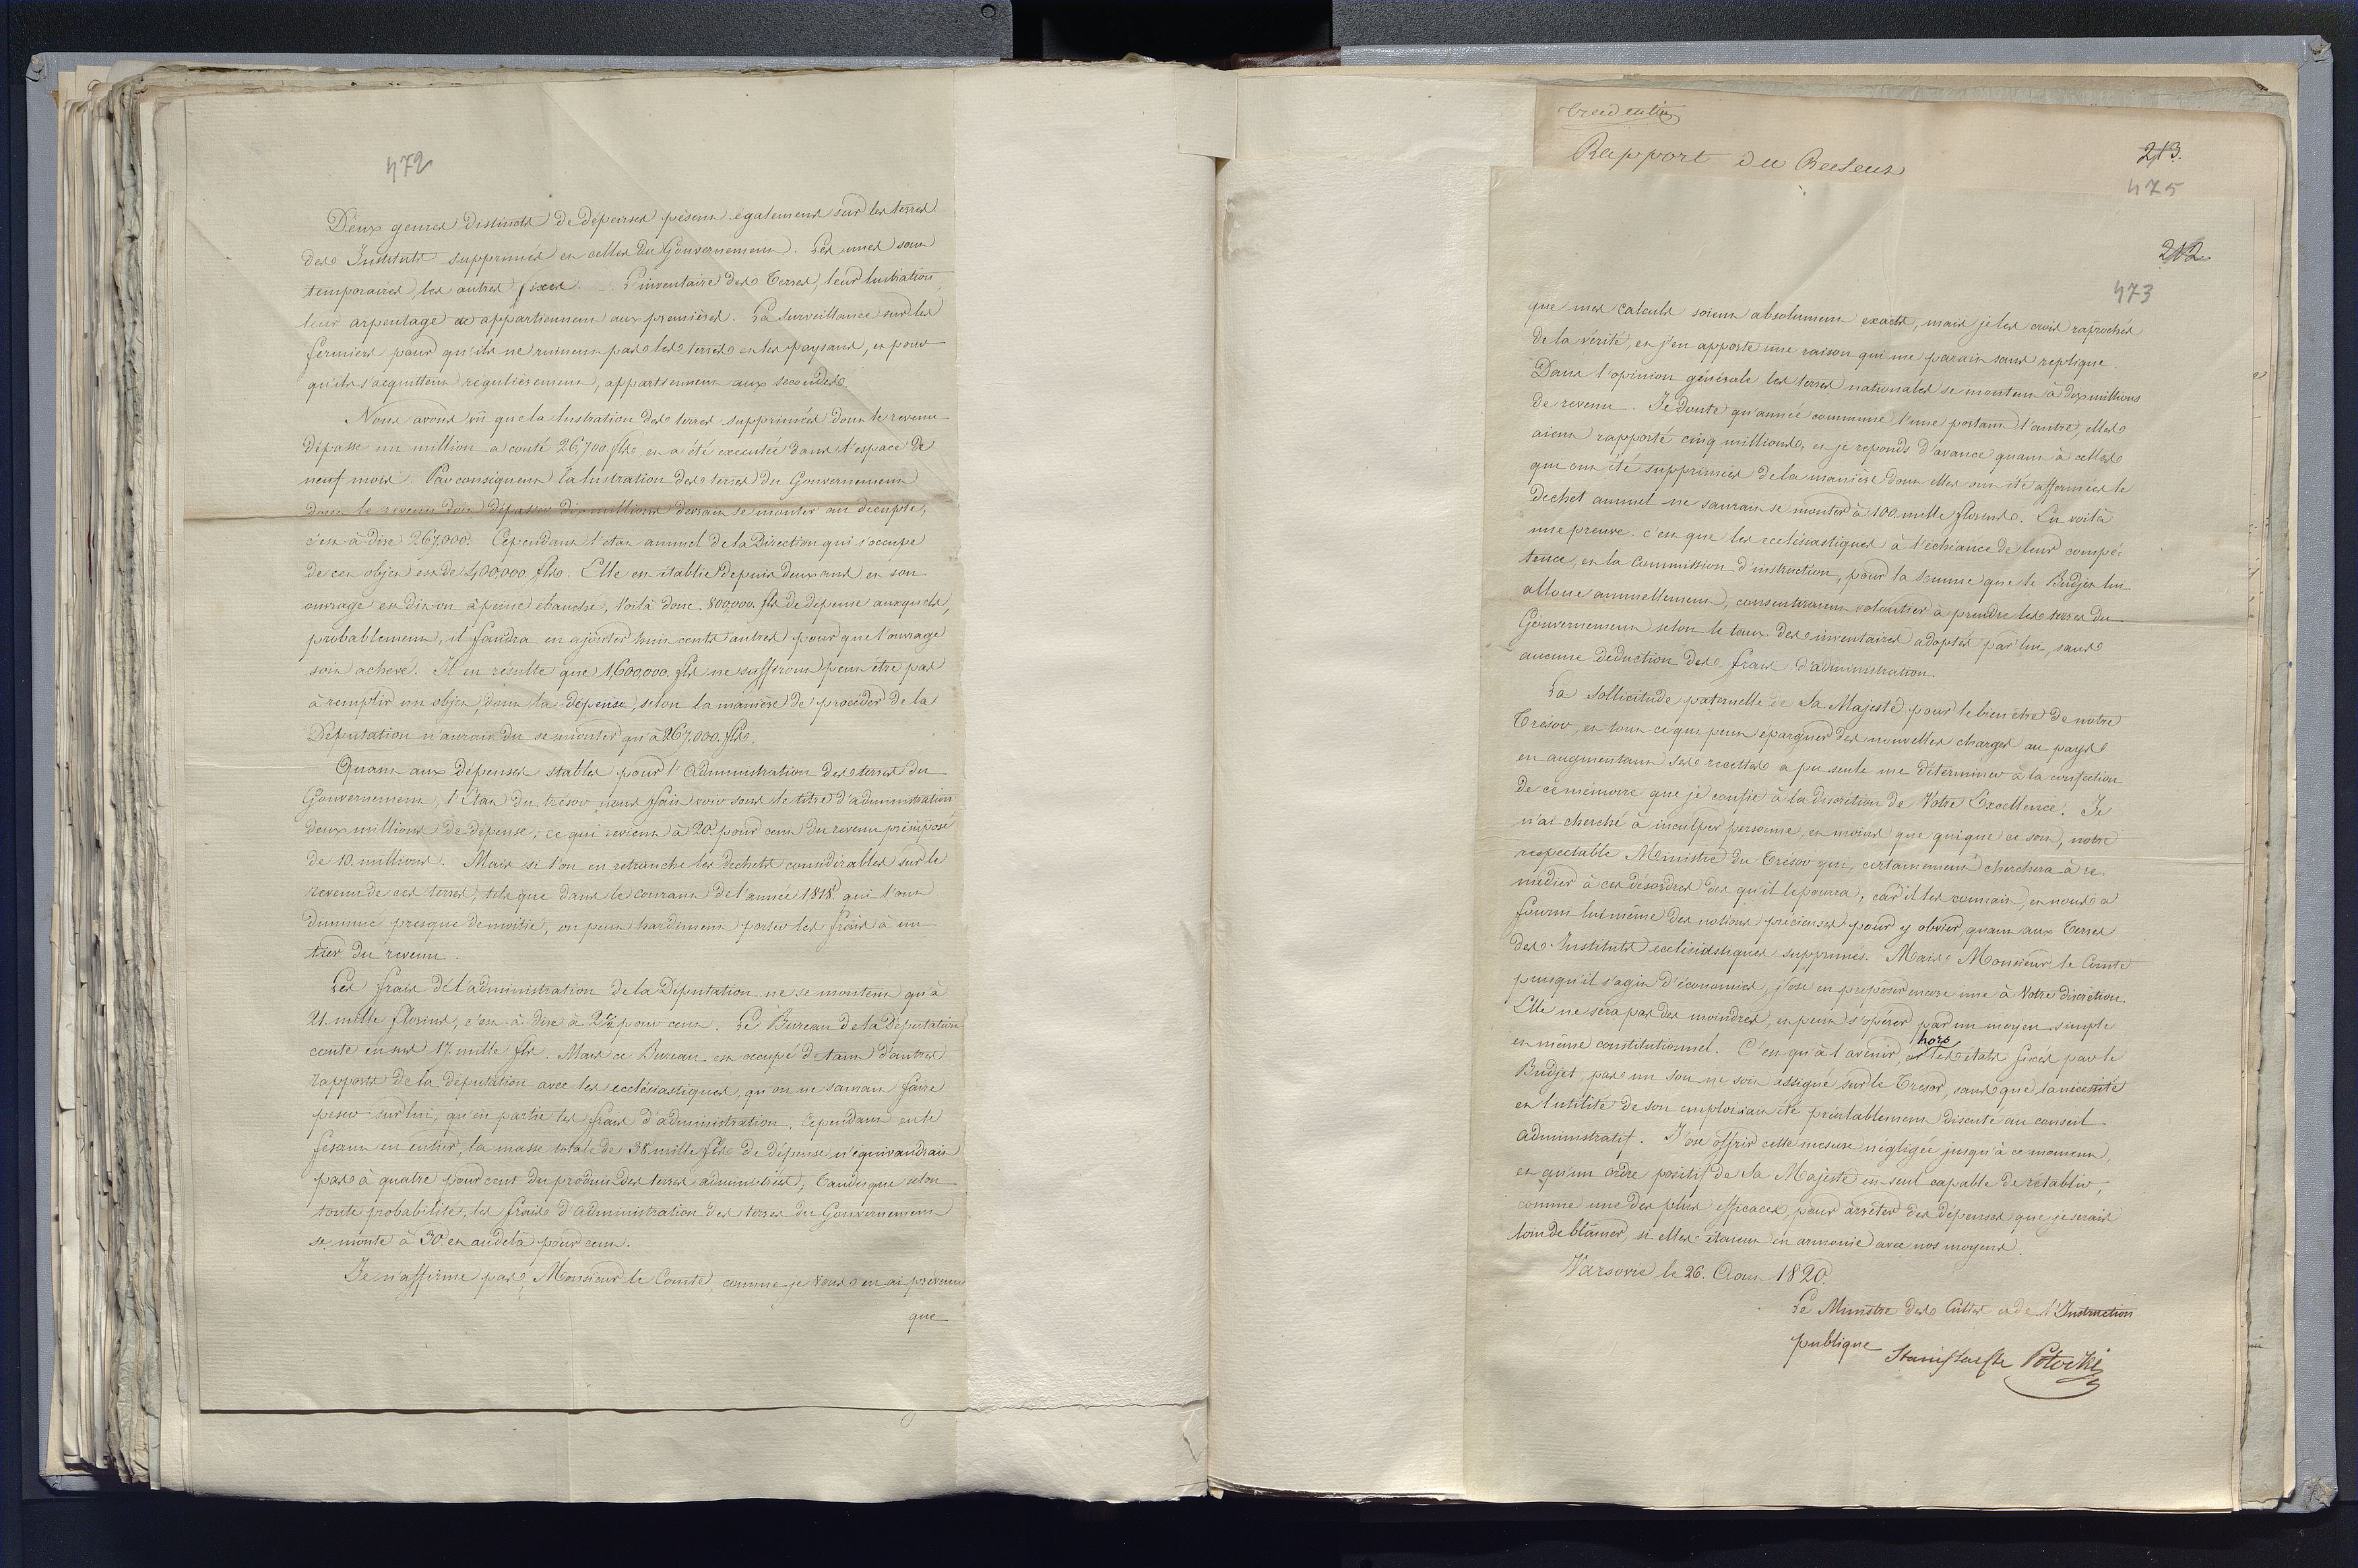 472
Deux genres distincts de dépenses pèsent également sur les terres
des Instituts supprimés et celles du Gouvernement. Les unes sont
temporaires, les autres fixes. L'inventaire des terres, leur lustration,
leur arpentage appartiennent aux premières. La surveillance sur les
fermiers pour qu'ils ne ruinent pas les terres et les paysans, et pour
qu'ils s'acquittent regulièrement, appartiennent aux secondes.
Nous avons vû que la lustration des terres supprimées dont le revenu
dépasse un million a couté 26,700 fls, et a été executée dans l'espace de
neuf mois. Par consequent la lustration des terres du Gouvernement
dont le revenu doit dépasser dix millions devrait se monter au décuple,
c'est-à-dire 267,000. Cependant l'état annuel de la Direction qui s'occupe
de cet objet est de 400,000 fls. Elle est établie depuis deux ans et son
ouvrage est dit-on à peine ébauché. Voilà donc 800,000 fls de dépense auxquels,
probablement, il faudra en ajouter huit cents autres pour que l'ouvrage
soit achevé. Il en résulte que 1,600,000 fls ne suffiront peut être pas
à remplir un objet, dont la dépense, selon la manière de procéder de la
Députation n'aurait du se monter qu'à 267,000 fls.
Quant aux dépenses stables pour l'Administration des terres du
Gouvernement, l'Etat du trésor nous fait voir sous le titre d'administration
deux millions de dépense, ce qui revient à 20 pour cent du revenu présuposé
de 10. millions. Mais si l'on en retranche les dechets considérables sur le
revenu de ces terres, tels que dans le courant de l'année 1818. qui l'ont
diminué presque de moitié, on peut hardiment porter les frais à un
tiers du revenu.
Les frais de l'administration de la Députation ne se montent qu'à
21. mille florins, c'est-à-dire à 2½ pour cent. Le Bureau de la Députation
coute en sus 17. mille fls. Mais ce Bureau est occupé de tant d'autres
rapports de la députation avec les ecclésiastiques, qu'on ne saurait faire
peser sur lui, qu'en partie les frais d'administration. Cependant en le
fesant en entier, la masse totale de 38 mille fls de dépense n'équivaudrait
pas à quatre pour cent du produit des terres administrées, tandis que selon
toute probabilité, les frais d'administration des terres du Gouvernement
se monte à 30. et audelà pour cent.
Je n'affirme pas, Monsieur le Comte, comme je vous en ai prévenu
que
Rapport du Recteur
213.
475
212
473
que mes calculs soient absolument exacts, mais je les crois raprochés
de la vérité, et j'en apporte une raison qui me parait sans replique.
Dans l'opinion générale les terres nationales se montent à dix millions
de revenu. Je doute qu'année commune l'une portant l'autre, elles
aient rapporté cinq millions, et je reponds d'avance quant à celles
qui ont été supprimées de la manière dont elles ont été affermées le
dechet annuel ne saurait se monter à 100 mille florins. En voilà
une preuve. c'est que les ecclésiastiques à l'échéance de leur compé-
tence, et la Commission d'instruction, pour la somme que le Budjet lui
alloue annuellement, consentiraient volontier à prendre les terres du
Gouvernement selon le taux des inventaires adoptés par lui, sans
aucune déduction des frais d'administration.
La sollicitude paternelle de Sa Majesté pour le bien être de notre
Trésor, et tout ce qui peut épargner des nouvelles charges au pays
en augmentant ses recettes a pu seule me déterminer à la confection
de ce mémoire que je confie à la discrétion de Votre Excellence. Je
n'ai cherché à inculper personne, et moins que quique ce soit, notre
respectable Ministre du Trésor qui, certainement cherchera à re-
médier à ces désordres dès qu'il le pourra, car il les connait, et nous a
fourni lui même des notions précieuses pour y obvier, quant aux Terres
des Instituts ecclésiastiques supprimés. Mais Monsieur le Comte
puisqu'il s'agit d'économies, j'ose en proposer encore une à Votre discrétion.
Elle ne sera pas des moindres, et peut s'opérer par un moyen simple
et même constitutionnel. C'est qu'à l'avenir hors les etats fixés par le
Budjet, pas un sou ne soit assigné sur le Tresor, sans que la nécessité
et l'utilité de son emploi ait été préalablement discuté au conseil
administratif. J'ose offrir cette mesure négligée jusqu'à ce moment,
et qu'un ordre positif de Sa Majesté est seul capable de rétablir,
comme une des plus efficaces, pour arrêter des dépenses que je serais
loin de blâmer, si elles étaient en armonie avec nos moyens.
Varsovie le 26. Aout 1820.
Le Ministre des Cultes et de l'Instruction
publique Stanislas Cte Potocki